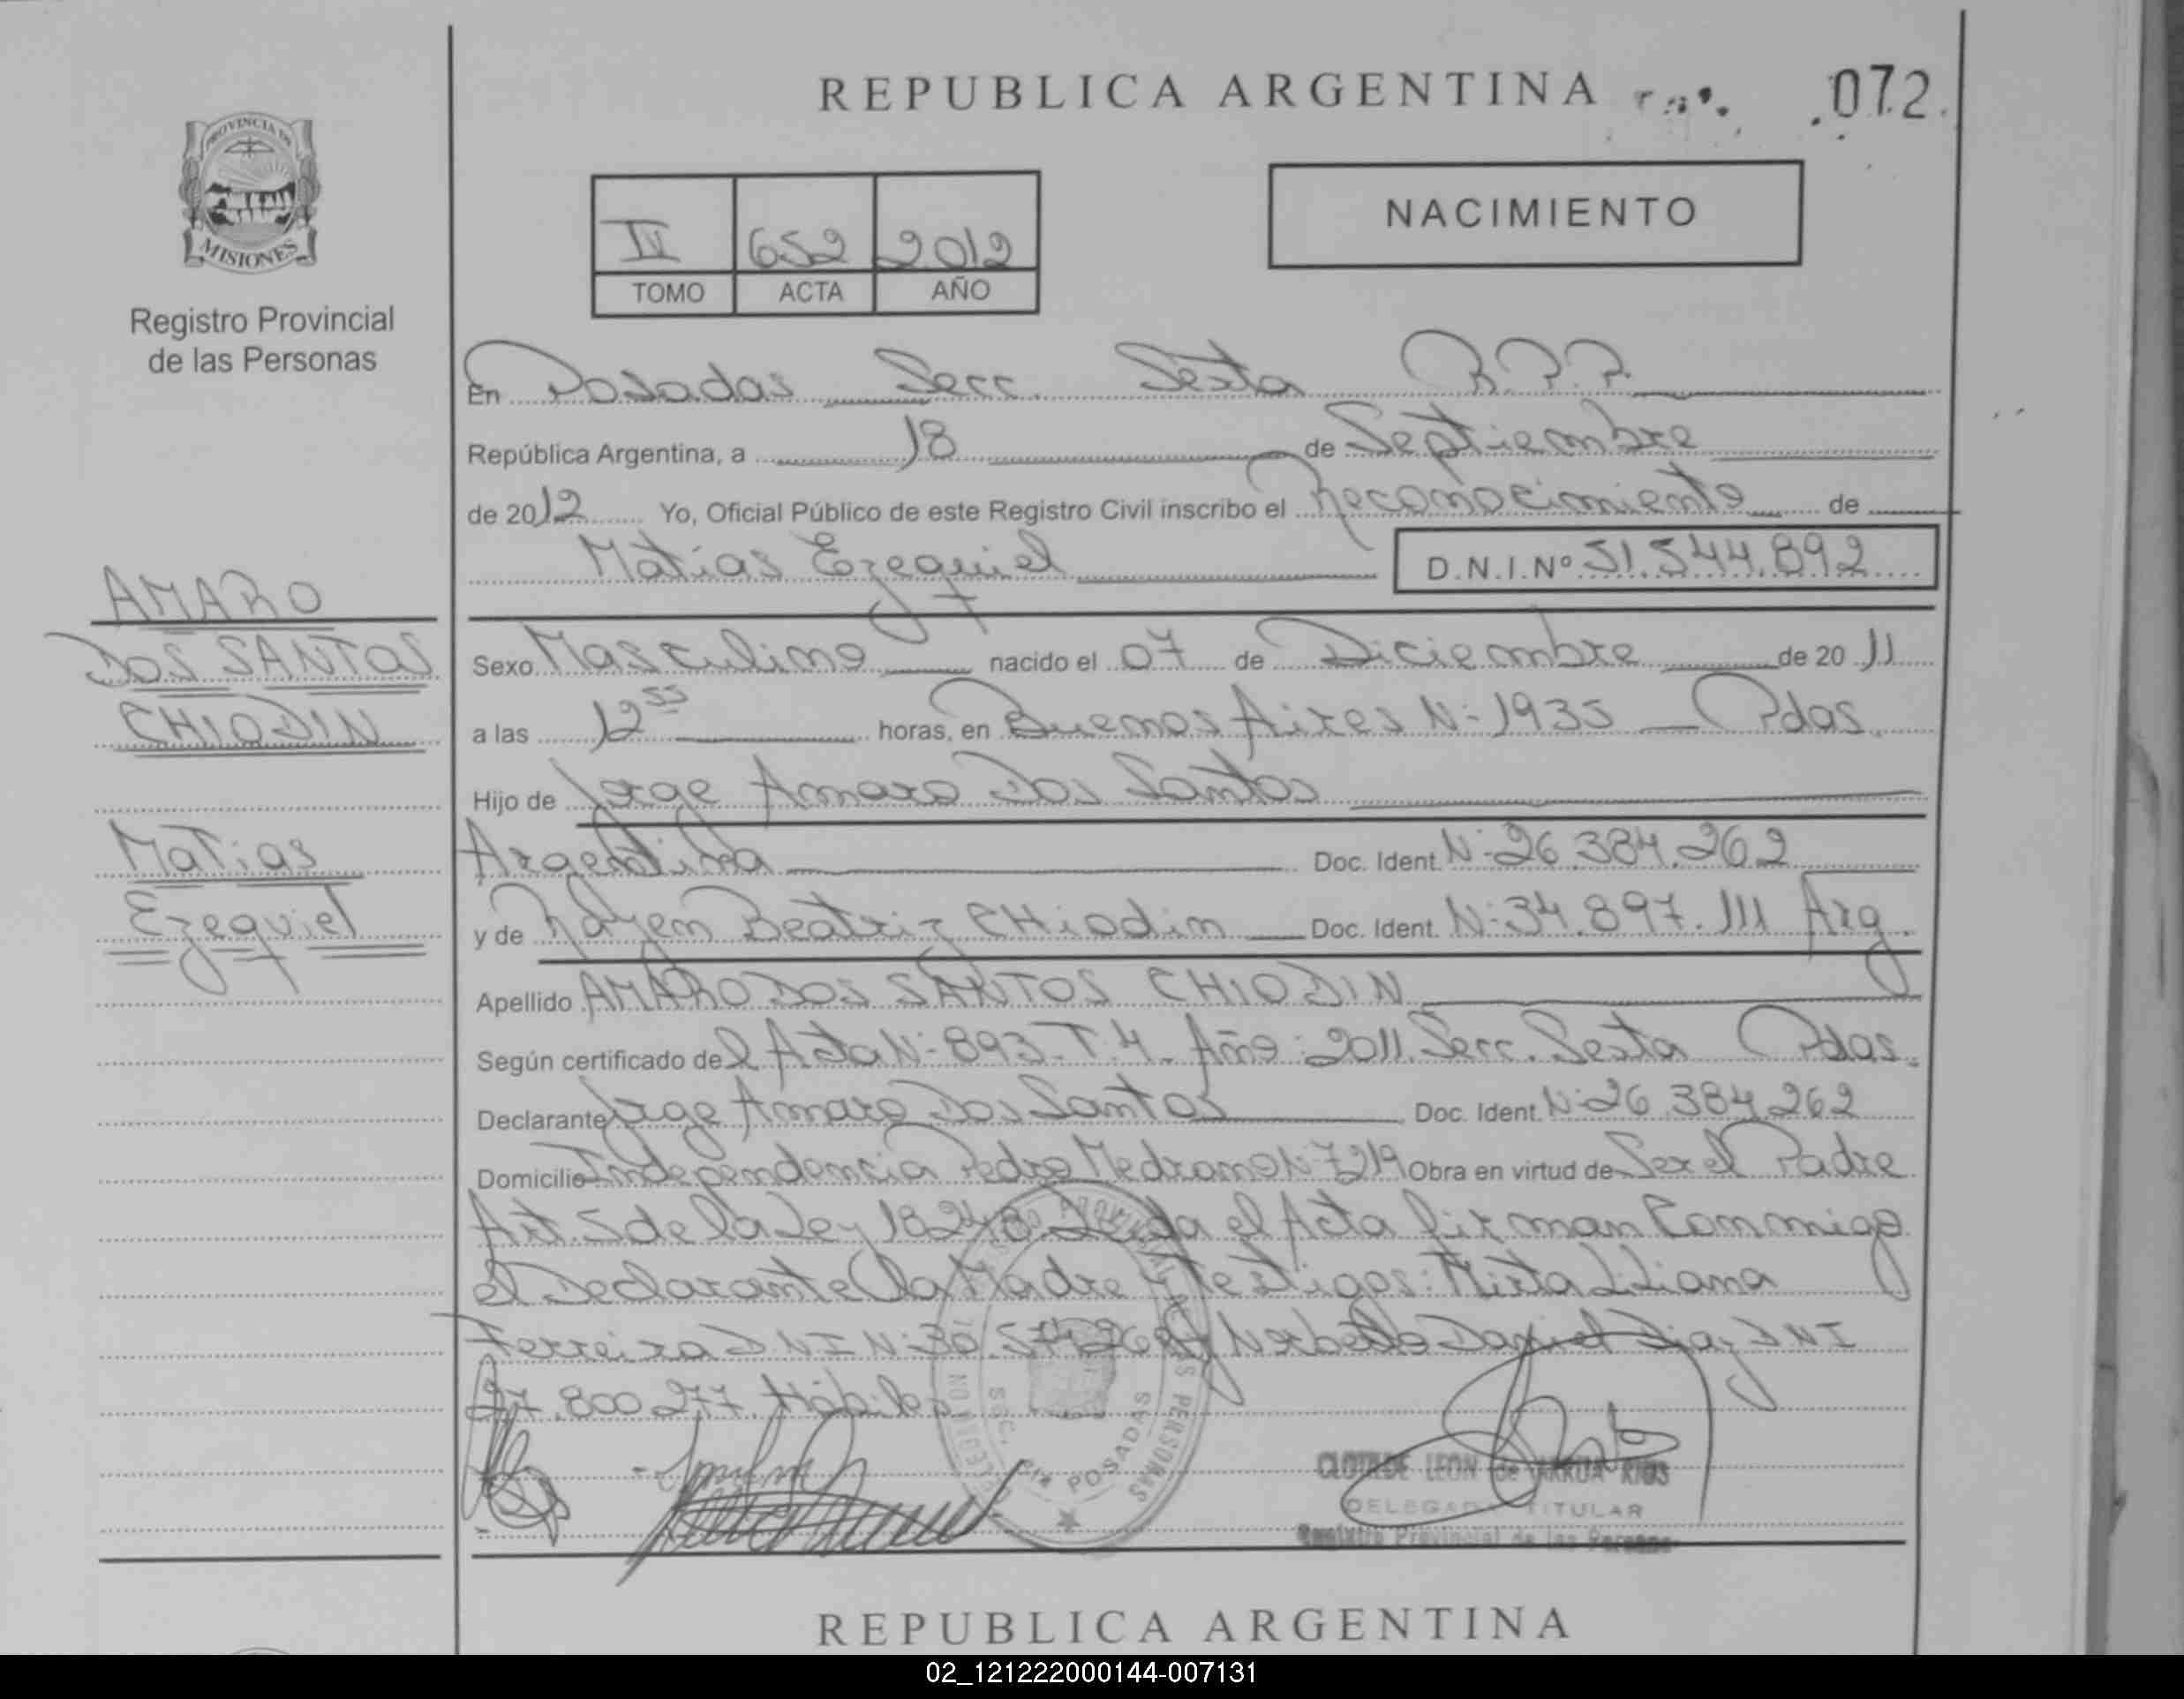 REPUBLICA ARGENTINA
072
PROVINCIA DE
MISIONES
Registro Provincial
de las Personas
IV 652 2012
TOMO ACTA AÑO
NACIMIENTO
En Posadas Secc. Sexta R.P.P.
República Argentina, a 18 de Septiembre
de 2012 Yo, Oficial Público de este Registro Civil inscribo el Reconocimiento de
Matias Ezequiel D.N.I.Nº 51.544.892
AMARO
DOS SANTOS
CHIODIN
Matias
Ezequiel
Sexo Masculino nacido el 07 de Diciembre de 2011
a las 12 55 horas, en Buenos Aires N: 1935 Pdas.
Hijo de Jorge Amaro Dos Santos
Argentina Doc. Ident. N: 26.384.262
y de Beatriz CHiodin Doc. Ident. N: 34.897.111 Arg.
Apellido AMARO DOS SANTOS CHIODIN
Según certificado del Acta N: 893-T.4. Año: 2011. Secc. Sexta Pdas.
Declarante Jorge Amaro Dos Santos Doc. Ident. N: 26.384.262
Domicilio Independencia Pedro Medrano N: 7219 Obra en virtud de Ser el Padre
Art. 5 de la Ley 18248. Leida el Acta firman Conmigo
el Declarante la Madre y Testigos: Mirta Liliana
Ferreira DNI N: y Norberto Daniel Diaz DNI
27.800.277. Hábiles
POSADAS
CLOTILDE LEON de RIOS
DELEGADA TITULAR
Registro Provincial de las Personas
REPUBLICA ARGENTINA
02_121222000144-007131